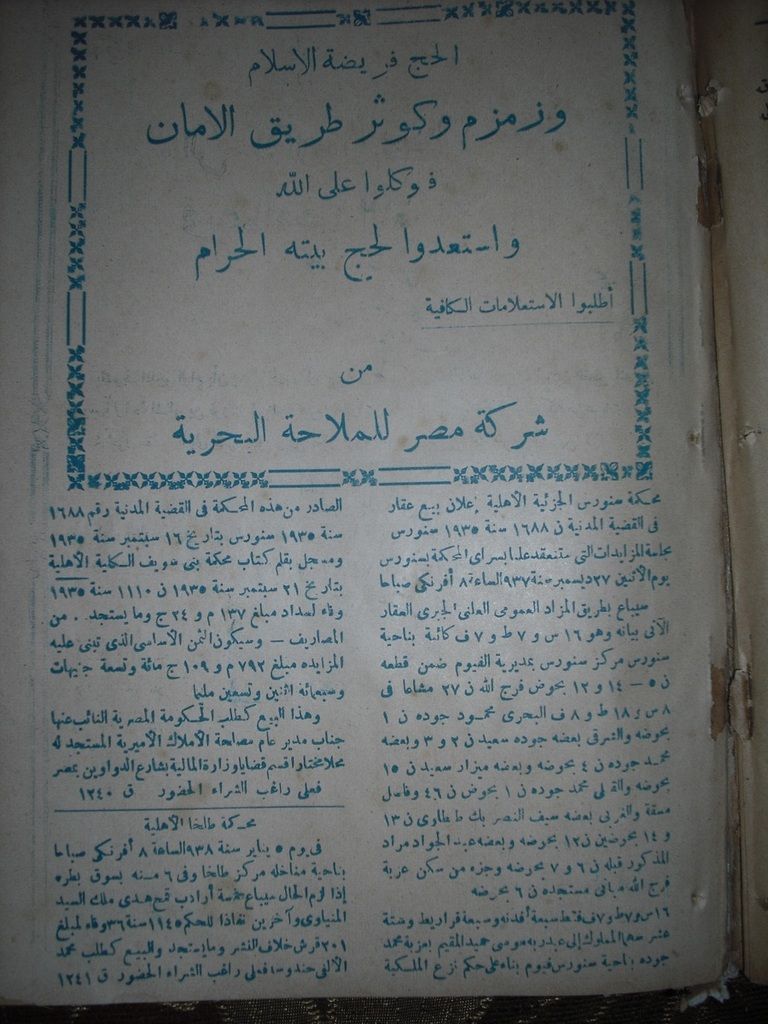 الحج فريضة الاسلام
وزمزم وكوثر طريق الامان
فوكلوا على الله
واستعدوا لحج بيته الحرام
أطلبوا الاستعلامات الكافية
من
شركة مصر للملاحة البحرية
محكمة سنورس الجزئية الأهلية إعلان بيع عقار
فى القضية المدنية ن ١٦٨٨ سنة ١٩٣٥ سنورس
بجلسة المزايدات التى ستنعقد علنا بسراى المحكمة بسنورس
يوم الأثنين ٢٧ ديسمبر سنة ٩٣٧ الساعة ٨ أفرنكى صباحا
سيباع بطريق المزاد العمومى العلنى الجبرى العقار
الآتى بيانه وهو ١٦ س و ٧ ط و ٧ ف كائنة بناحية
سنورس مركز سنورس بمديرية الفيوم ضمن قطعه
ن ٥ – ١٤ و ١٢ بحوض فرج الله ن ٢٧ مشاعا فى
٨ س و ١٨ ط و ٨ ف البحرى محمود جوده ن ١
بحوضه والشرقى بعضه جوده سعيد ن ٢ و ٣ وبعضه
محمد جوده ن ٤ بحوضه وبعضه ميزار سعيد ن ١٥
بحوضه والقبلى محمد جوده ن ١ بحوض ن ٤٦ وفاصل
مسقة والغربى بعضه سيف النصر بك طنطاوى ن ١٣
و ١٤ بحوضين ن ١٢ بحوضه وبعضه عبد الجواد مراد
المذكور قبله ن ٦ و ٧ بحوضه وجزء من سكن عزبة
فرج الله مبانى مستجده ن ٦ بحوضه
١٦ س و ٧ ط و ٧ ف فقط سبعة أفدنه وسبعة قراريط وستة
عشر سهما المملوك إلى عبد ربه موسى حميد المقيم بعزبة محمد
جوده بناحية سنورس فيوم بناء على حكم نزع الملكية
الصادر من هذه المحكمة فى القضية المدنية رقم ١٦٨٨
سنة ١٩٣٥ سنورس بتاريخ ١٦ سبتمبر سنة ١٩٣٥
ومسجل بقلم كتاب محكمة بنى سويف الكلية الأهلية
بتاريخ ٢١ سبتمبر سنة ١٩٣٥ ن ١١١٠ سنة ١٩٣٥
وفاء لسداد مبلغ ١٣٧ م و ٢٤ ج وما يستجد . من
المصاريف – وسيكون الثمن الأساسى الذى تبنى عليه
المزايده مبلغ ٧٩٢ م و ١٠٩ ج مائة وتسعة جنيهات
وسبعمائة اثنين وتسعين مليما
وهذا البيع كطلب الحكومة المصرية النائب عنها
جناب مدير عام مصلحة الأملاك الأميرية المتخذ له
محلا مختارا قسم قضايا وزارة المالية بشارع الدواوين بمصر
فعلى راغب الشراء الحضور ق ١٢٤٠
محكمة طلخا الأهلية
فى يوم ٥ يناير سنة ٩٣٨ الساعة ٨ أفرنكى صباحا
بناحية مناخله مركز طلخا وفى ٦ منه بسوق بطره
إذا لزم الحال سيباع خمسة أرادب قمح هندى ملك السيد
المنياوى وآخرين نفاذا للحكم ١١٤٥ سنة ٣٦ وفاء لمبلغ
٢٠١ قرش خلاف النشر وما يستجد والبيع كطلب محمد
الألفى حندوسا فعلى راغب الشراء الحضور ق ١٢٤١